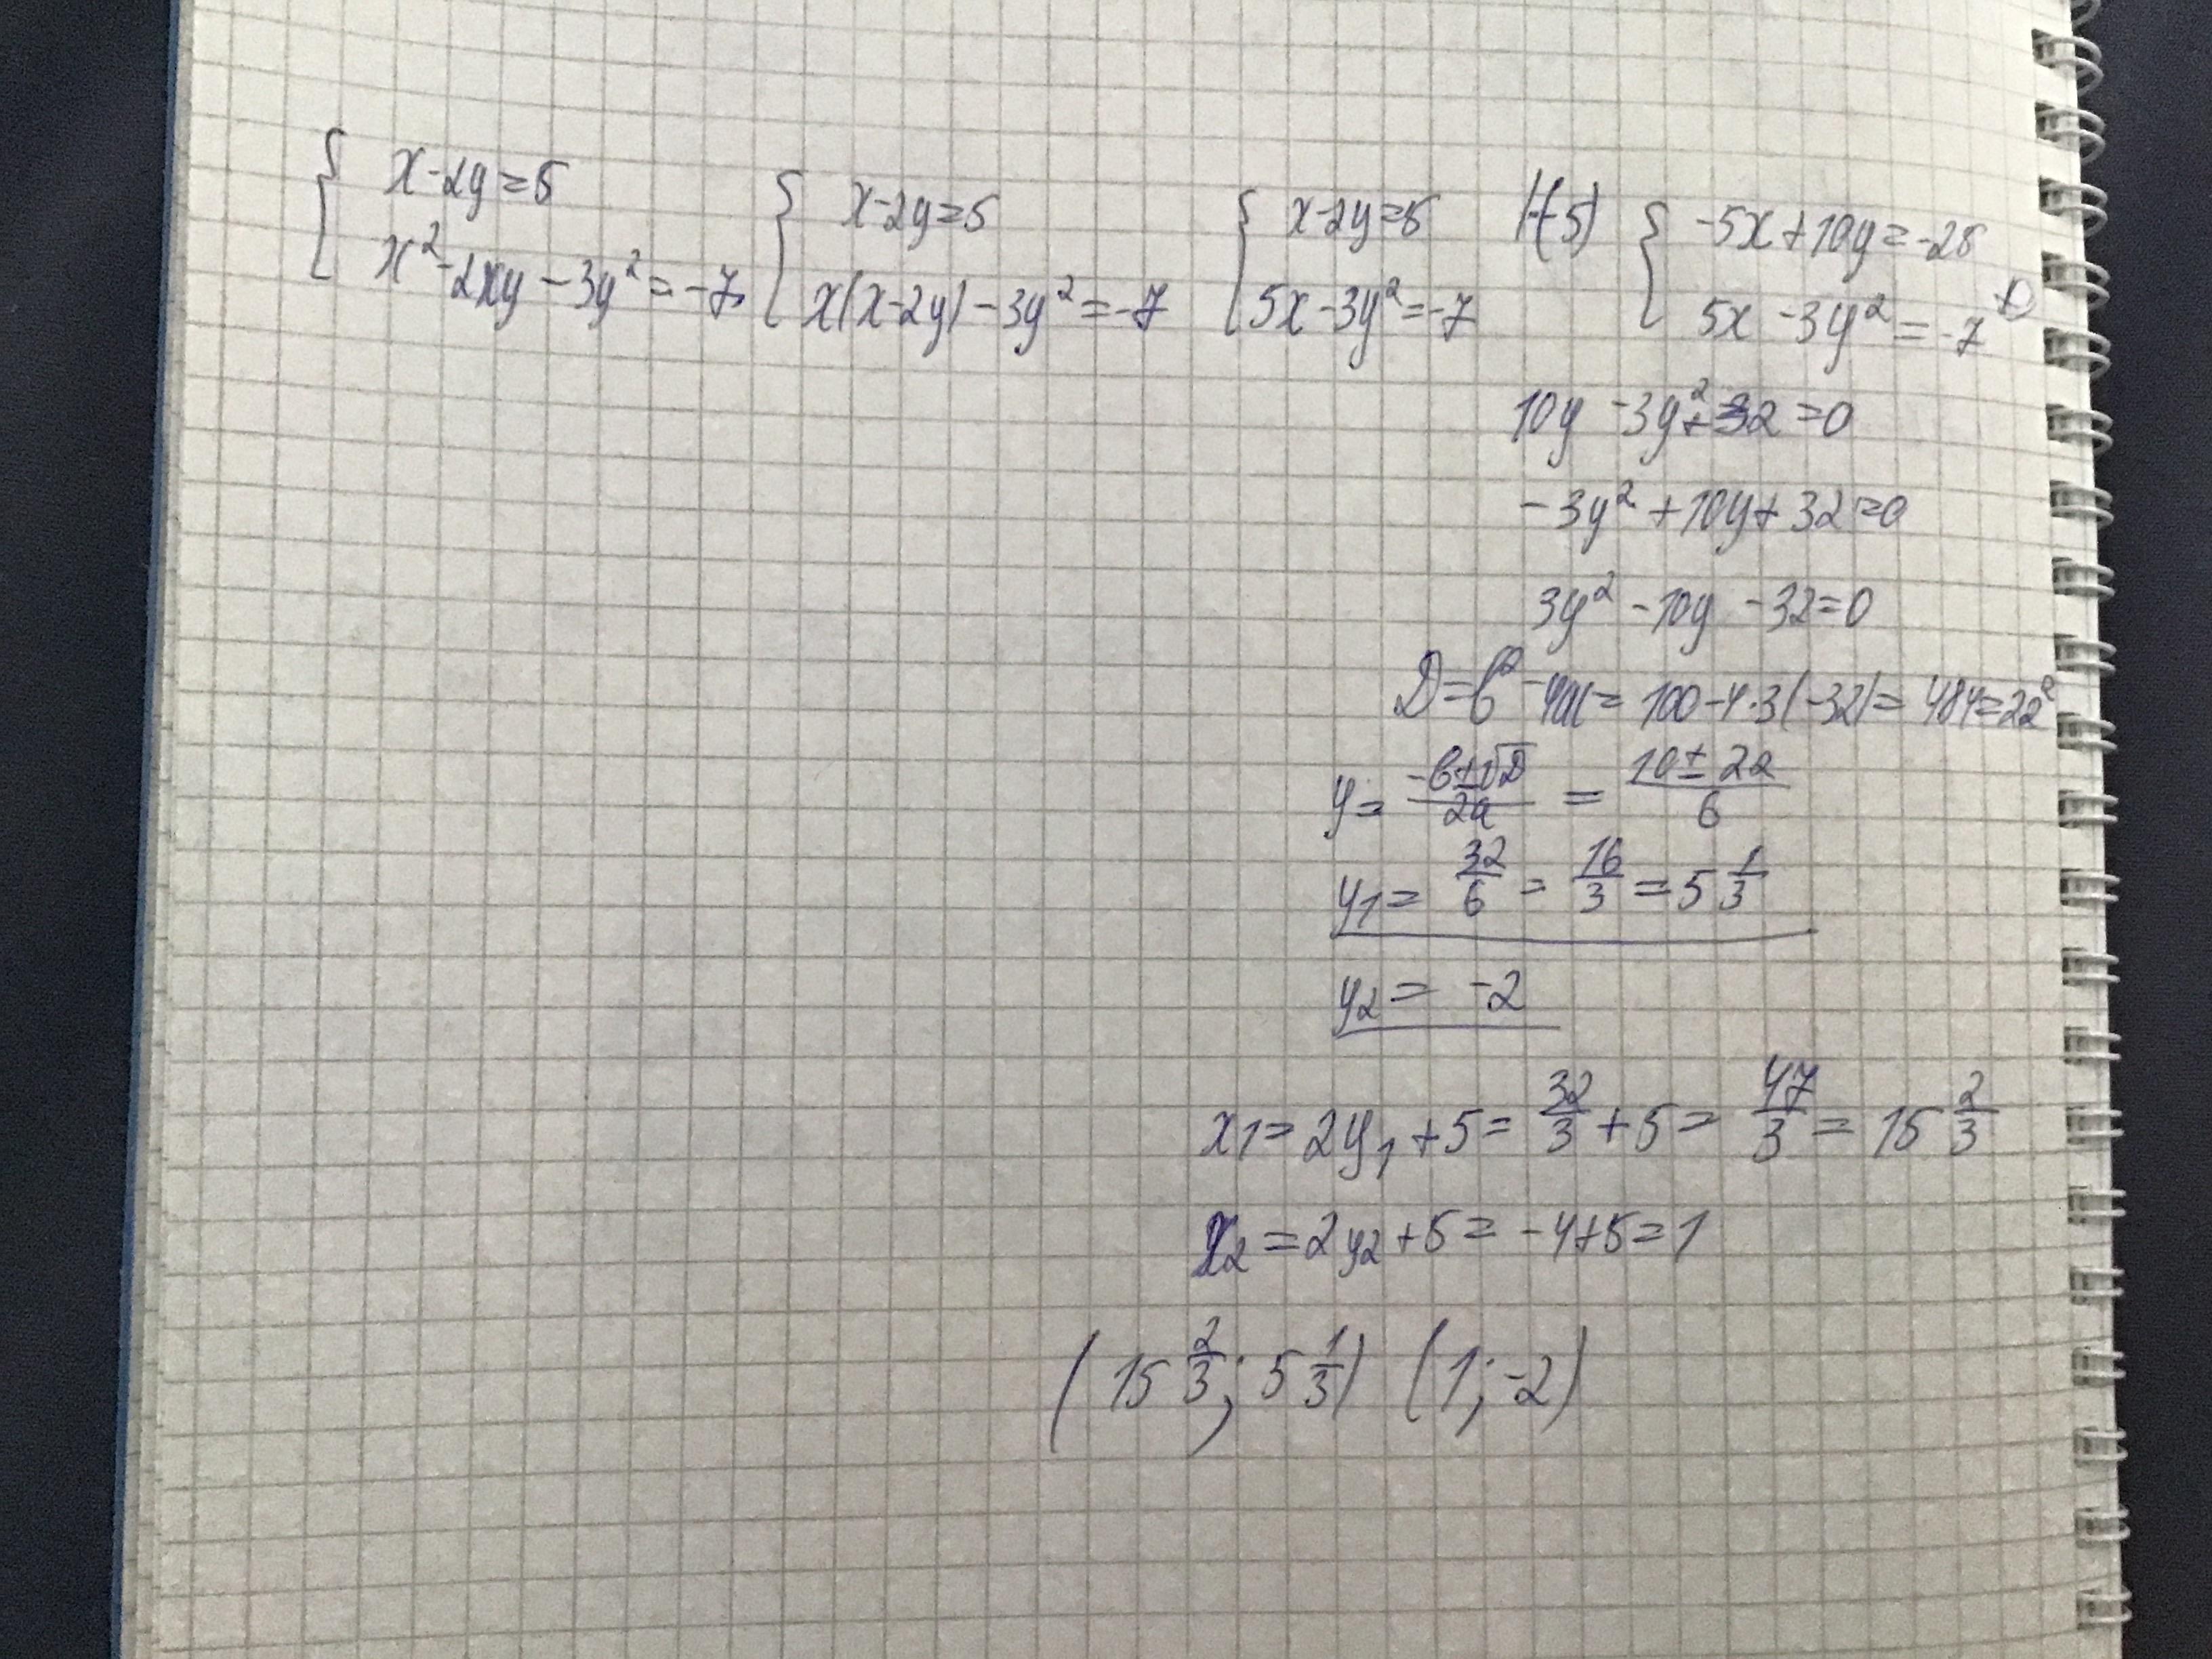 { x-2y=5 { x-2y=5 { x-2y=5 |·(-5) { -5x+10y=-25
x²-2xy-3y²=-7 x(x-2y)-3y²=-7 5x-3y²=-7 5x-3y²=-7
10y-3y²+32=0
-3y²+10y+32=0
3y²-10y-32=0
D=b²-4ac=100-4·3(-32)=484=22²
y=(-b±√D)/(2a)=(10±22)/6
y₁=32/6=16/3=5 1/3
y₂=-2
x₁=2y₁+5=32/3+5=47/3=15 2/3
x₂=2y₂+5=-4+5=1
(15 2/3; 5 1/3) (1; -2)